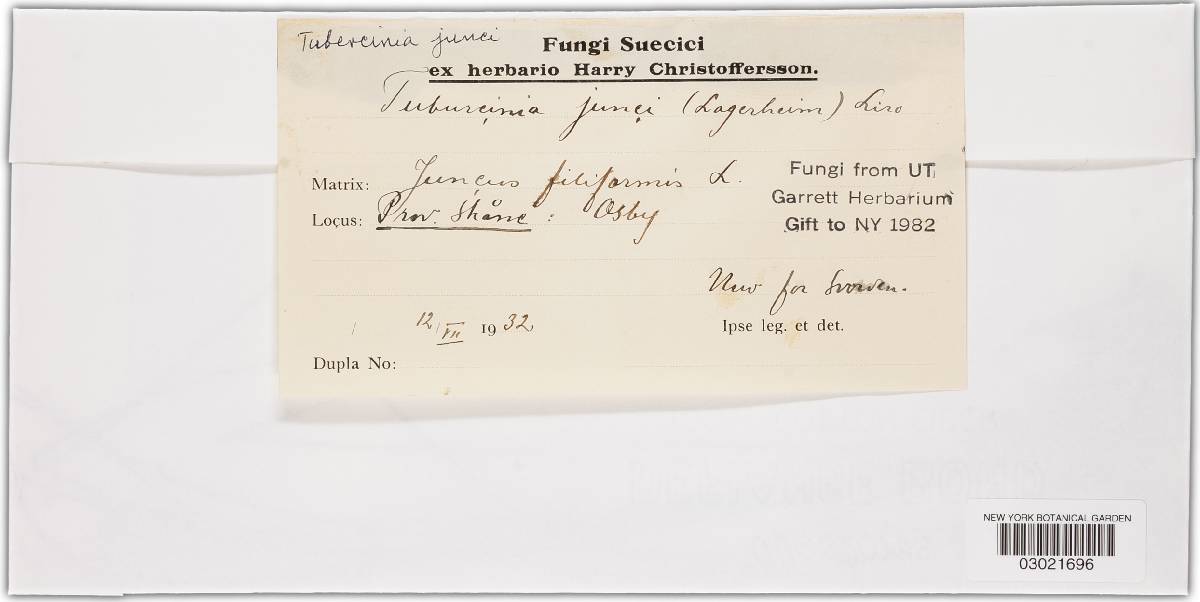 Tubercinia junci
Fungi Suecici
ex herbario Harry Christoffersson.
Tuburcinia junci (Lagerheim) Liro
Matrix: Juncus filiformis L.
Locus: Prov. Skåne: Osby
Fungi from UT
Garrett Herbarium
Gift to NY 1982
New for Sweden.
12/VII 1932
Ipse leg. et det.
Dupla No:
NEW YORK BOTANICAL GARDEN
03021696